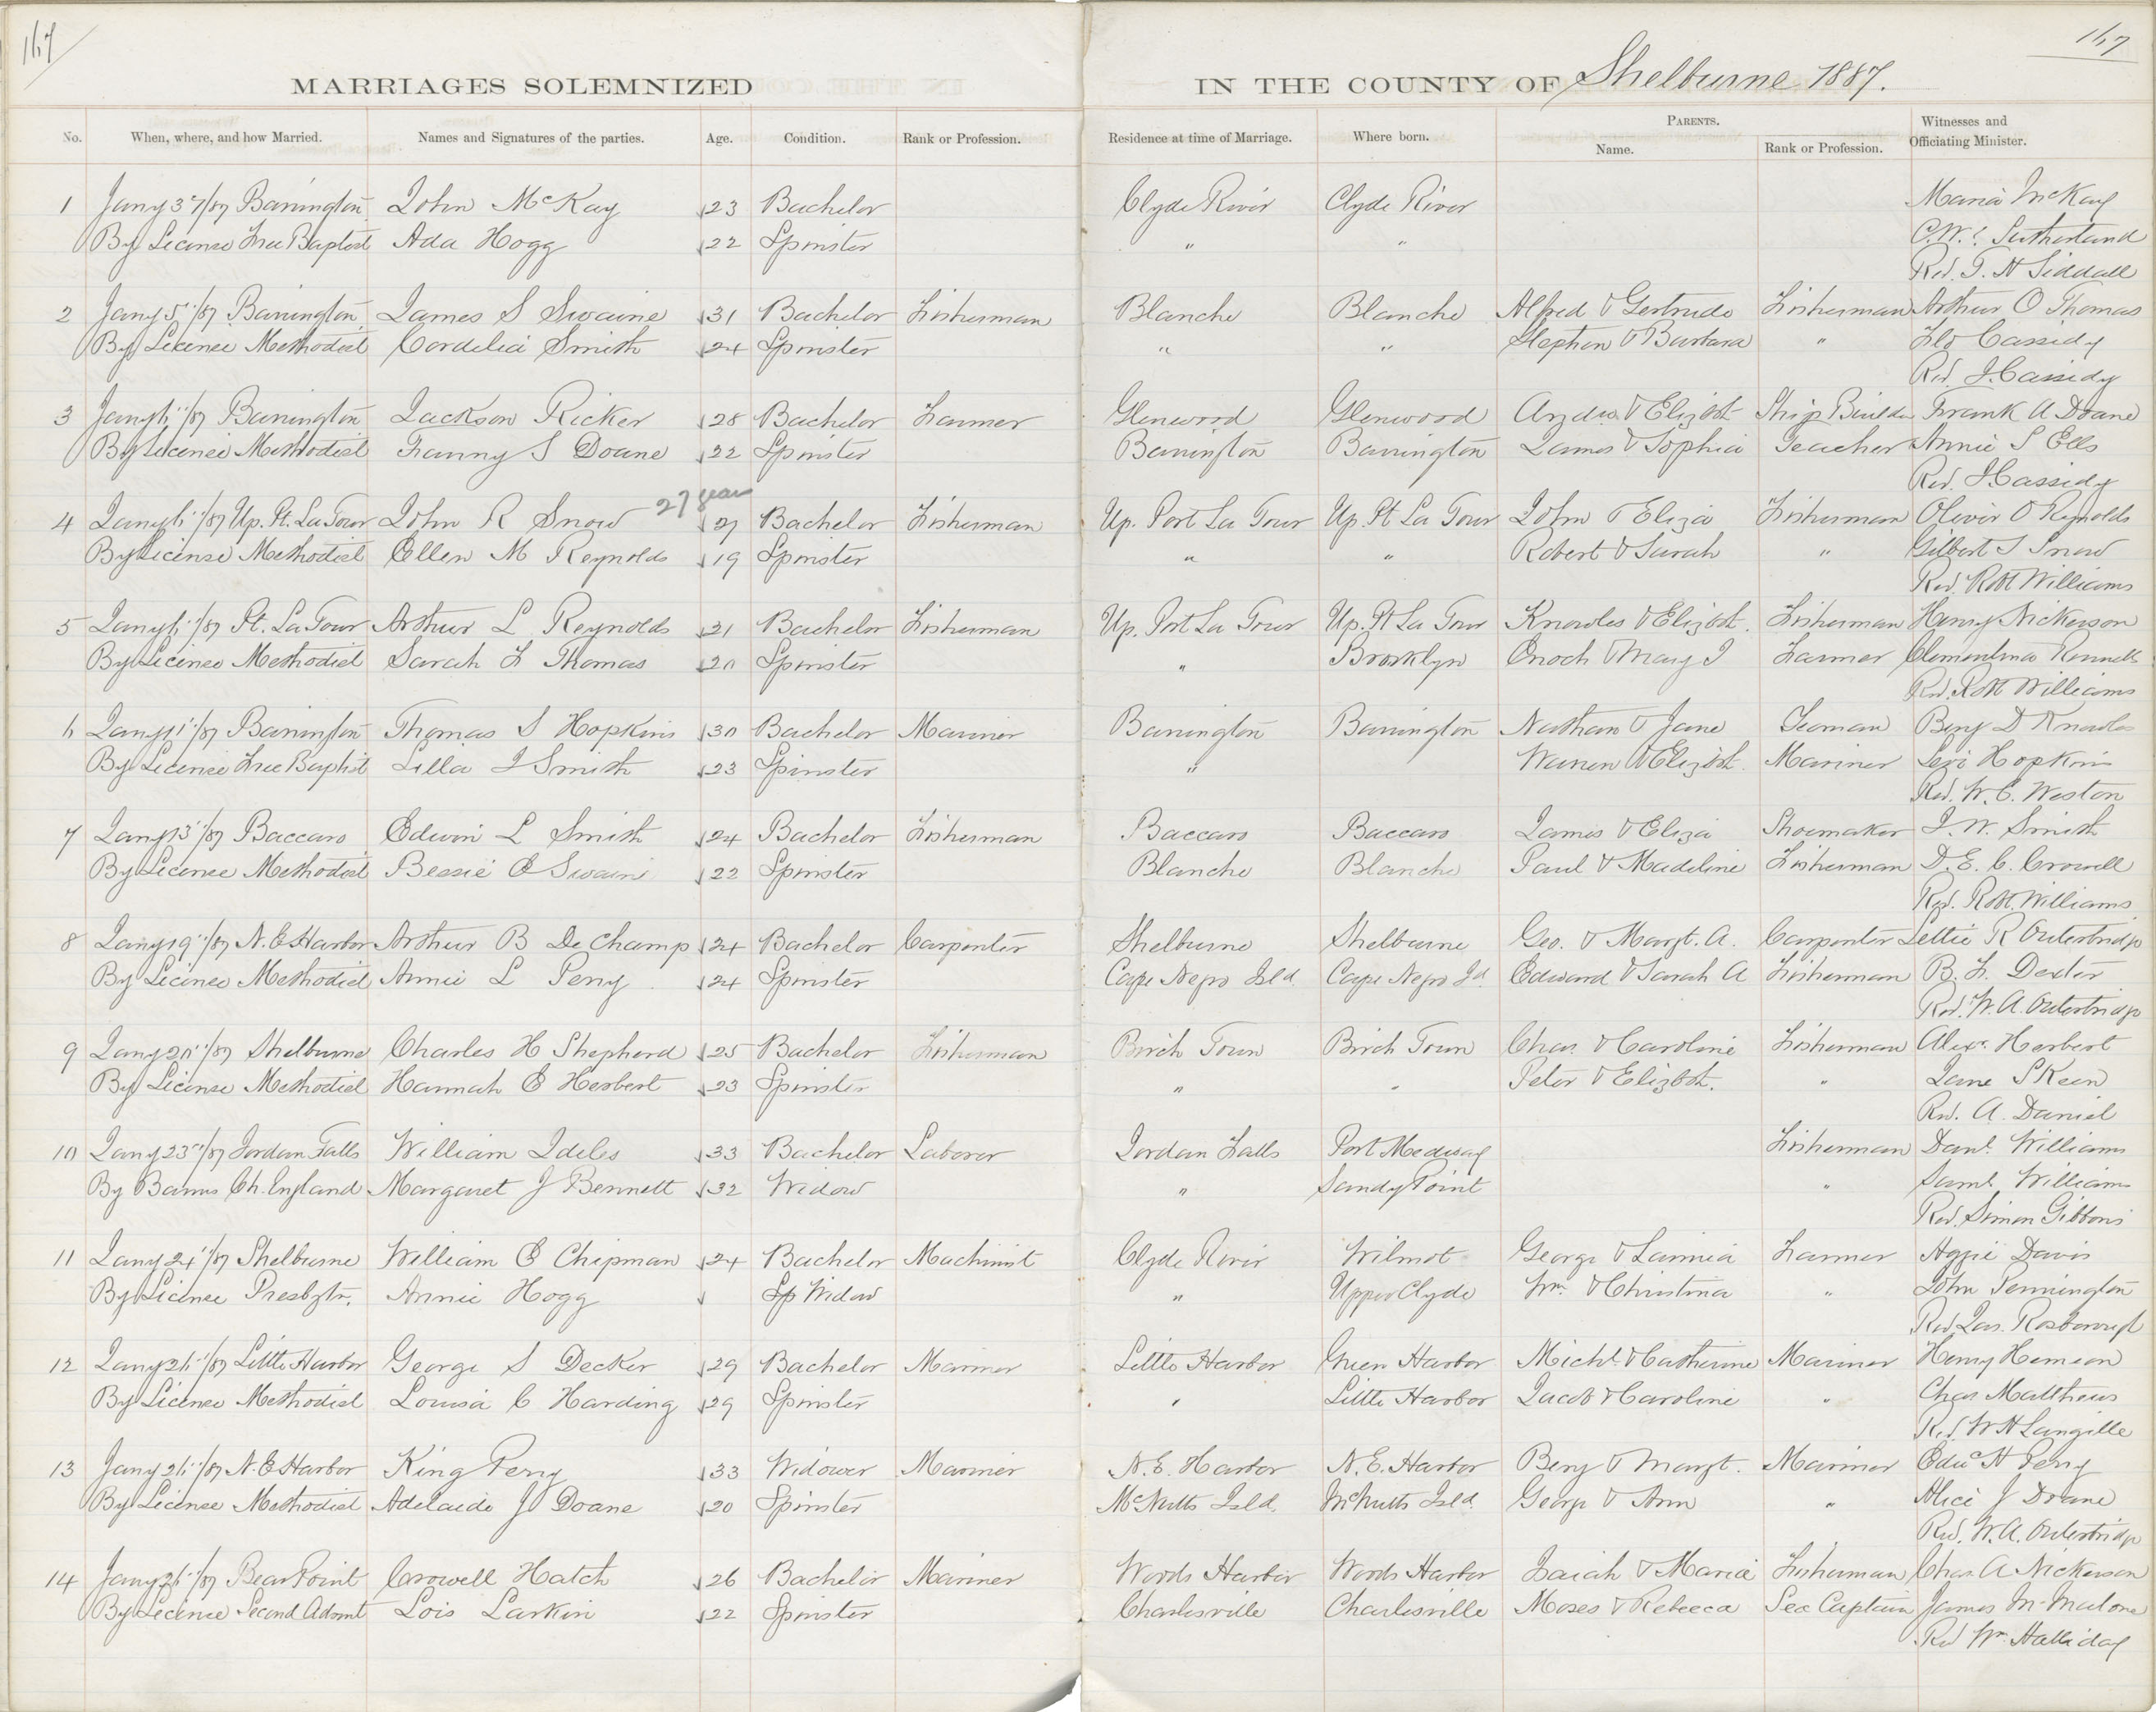 167
167
MARRIAGES SOLEMNIZED IN THE COUNTY OF Shelburne 1887.
No. When, where, and how Married. Names and Signatures of the parties. Age. Condition. Rank or Profession. Residence at time of Marriage. Where born. PARENTS. Name. Rank or Profession. Witnesses and Officiating Minister.
1 Jany 3rd/87 Barrington John McKay 23 Bachelor Clyde River Clyde River Maria McKay
By License Free Baptist Ada Hogg 22 Spinster " " C.W. Sutherland
Rev. T. H Siddall
2 Jany 5"/87 Barrington James S Swaine 31 Bachelor Fisherman Blanche Blanche Alfred & Gertrude Fisherman Arthur O Thomas
By Licence Methodist Cordelia Smith 24 Spinster " " Stephen & Barbara " Flo Cassidy
Rev. J. Cassidy
3 Jany 6"/87 Barrington Jackson Ricker 28 Bachelor Farmer Glenwood Glenwood & Elizbth Ship Builder Frank A Doane
By Licence Methodist Fanny S Doane 22 Spinster Barrington Barrington James & Sophia Teacher Annie S Ells
Rev. J Cassidy
27 years
4 Jany 6"/87 Up. Pt. La Tour John R Snow 27 Bachelor Fisherman Up. Port La Tour Up. Pt La Tour John & Eliza Fisherman Oliver O Reynolds
By License Methodist Ellen M Reynolds 19 Spinster " " Robert & Sarah " Gilbert S Snow
Rev. Robt Williams
5 Jany 6"/87 Pt. La Tour Arthur L Reynolds 21 Bachelor Fisherman Up. Port La Tour Up. Pt La Tour Knowles & Elizbth. Fisherman Henry Nickerson
By Licence Methodist Sarah F Thomas 20 Spinster " Brooklyn Enoch & Mary J Farmer Clementina
Rev. Robt Williams
6 Jany 11"/87 Barrington Thomas S Hopkins 30 Bachelor Mariner Barrington Barrington Nathan & Jane Yeoman Benj D Knowles
By Licence Free Baptist Lilla J Smith 23 Spinster " Warren & Elizbth. Mariner Levi Hopkins
Rev. W. C. Weston
7 Jany 13"/87 Baccaro Edwin L Smith 24 Bachelor Fisherman Baccaro Baccaro James & Eliza Shoemaker J. W. Smith
By License Methodist Bessie E Swaine 22 Spinster Blanche Blanche Paul & Madeline Fisherman D. E. C. Crowell
Rev. Robt. Williams
8 Jany 19"/87 N. E Harbor Arthur B De Champ 24 Bachelor Carpenter Shelburne Shelburne Geo. & Margt. A. Carpenter Lettie R Outerbridge
By Licence Methodist Annie L Perry 24 Spinster Cape Negro Isld. Cape Negro Id. Edward & Sarah A Fisherman B. F. Dexter
Rev. W. A. Outerbridge
9 Jany 20"/87 Shelburne Charles H Shepherd 25 Bachelor Fisherman Birch Town Birch Town Chas. & Caroline Fisherman Alexr. Herbert
By License Methodist Hannah E Herbert 23 Spinster " " Peter & Elizbth. " Jane Skeen
Rev. A. Daniel
10 Jany 23rd/87 Jordan Falls William Ideles 33 Bachelor Laborer Jordan Falls Port Medway Fisherman Danl. Williams
By Banns Ch. England Margaret J Bennett 32 Widow " Sandy Point " Saml. Williams
Rev. Simon Gibbons
11 Jany 24"/87 Shelburne William E Chipman 24 Bachelor Machinist Clyde River Wilmot George & Lavinia Farmer Aggie Davis
By Licence Presbytr. Annie Hogg Sp Widow " Upper Clyde Wm. & Christina " John Pennington
Rev Jas. Rosborough
12 Jany 26"/87 Little Harbor George S Decker 29 Bachelor Mariner Little Harbor Green Harbor Michl. & Catherine Mariner Henry Hemeon
By Licence Methodist Louisa C Harding 29 Spinster " Little Harbor Jacob & Caroline " Chas Matthews
Rev. W H Langille
13 Jany 26"/87 N. E Harbor King Perry 33 Widower Mariner N. E. Harbor N. E. Harbor Benj & Margt. Mariner Edwd H Perry
By License Methodist Adelaide J Doane 20 Spinster McNutts Isld. McNutts Isld. George & Ann " Alice J Doane
Rev. W. A. Outerbridge
14 Jany 26"/87 Bear Point Crowell Hatch 26 Bachelor Mariner Woods Harbor Woods Harbor Isaiah & Maria Fisherman Chas. A Nickerson
By Licence Second Advnt Lois Larkin 22 Spinster Charlesville Charlesville Moses & Rebecca Sea Captain James M Malone
Rev Wm. Halliday